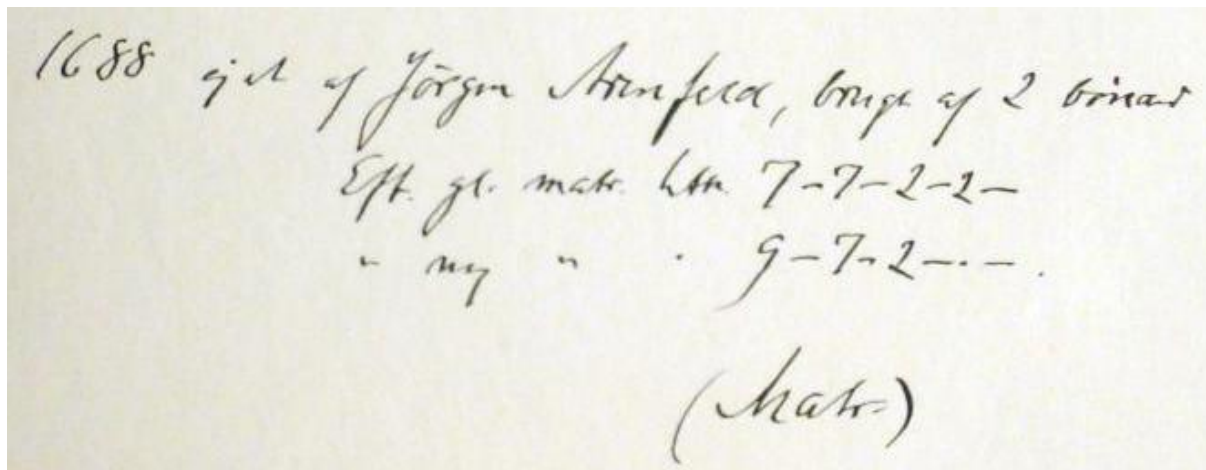 1688 ejet af Jörgen Arenfeld, brugt af 2 bönder
Eft. gl. matr. htk. 7-7-2-2-
" ny " " 9-7-2-.-.
(Matr.)